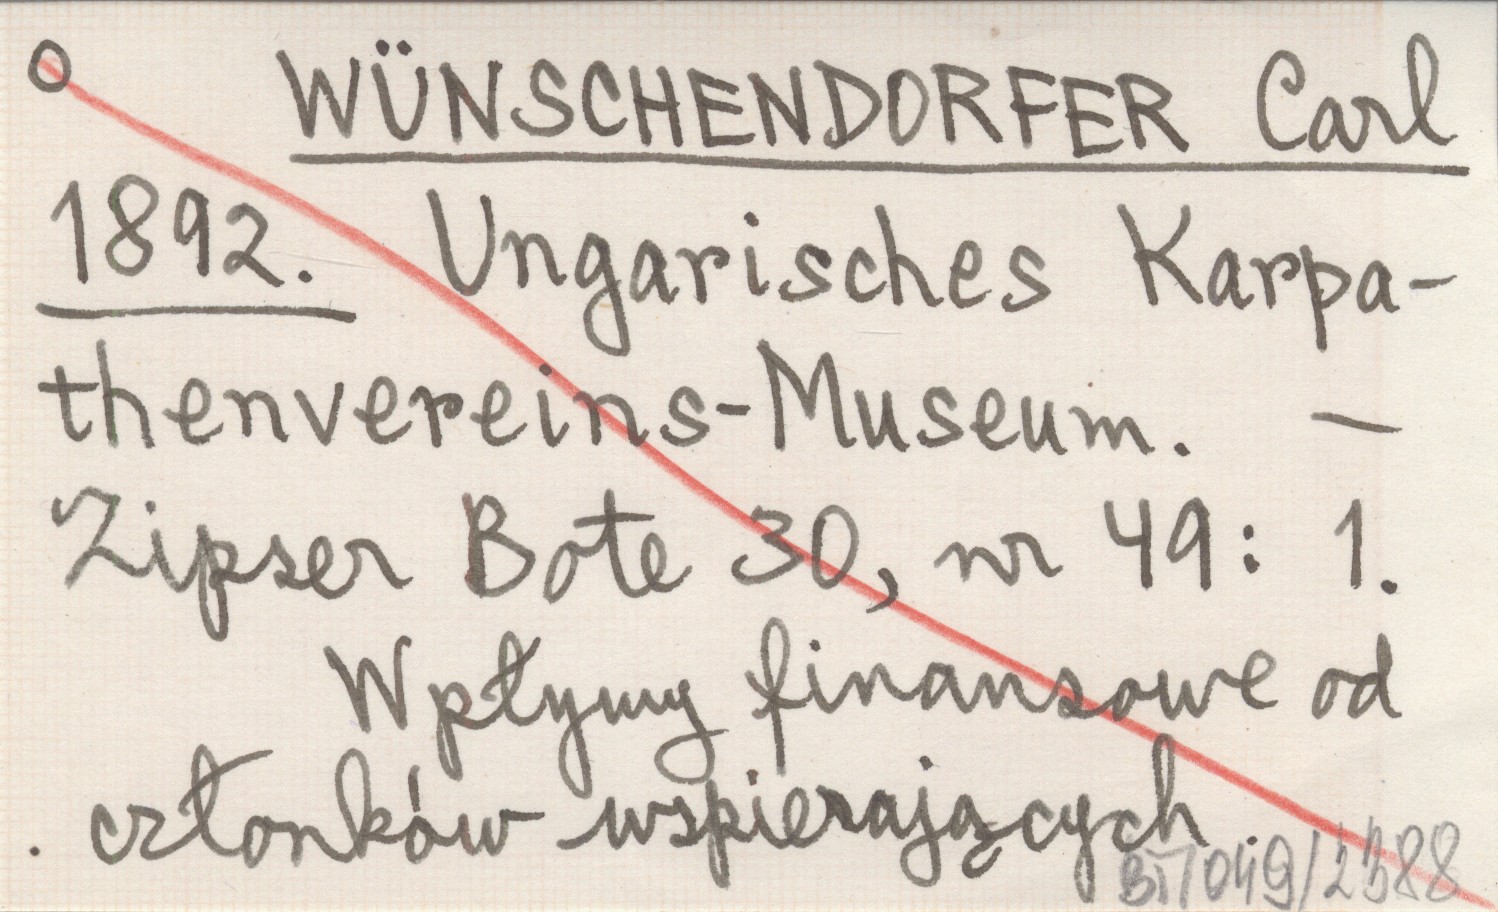 O WÜNSCHENDORFER Carl
1892. Ungarisches Karpa-
thenvereins-Museum. —
Zipser Bote 30, nr 49: 1.
Wpłymy finansowe od
członków wspierających.
049/2388